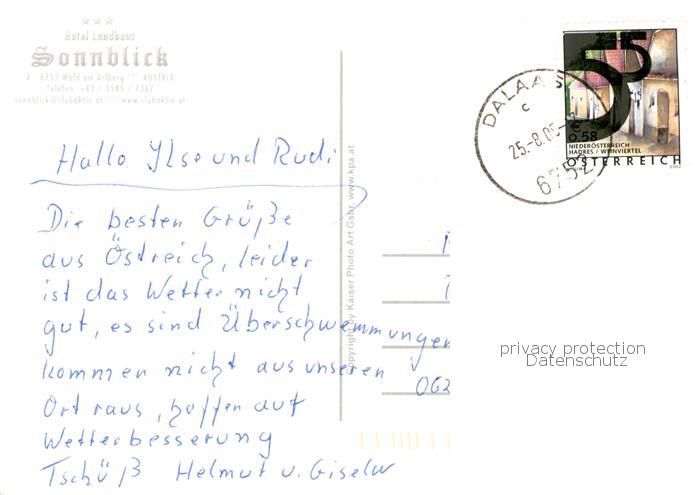 Hotel Landhaus
Sonnblick
A 6752 Wald am Arlberg *** AUSTRIA
Telefon: +43 / 5585 / 7367
sonnblick@clubaktiv.at *** www.clubaktiv.at
Hallo Ilse und Rudi
Die besten Grüße
aus Östreich, leider
ist das Wetter nicht
gut, es sind Überschwemmungen
kommen nicht aus unseren
Ort raus, hoffen auf
Wetterbesserung
Tschüß Helmut u. Gisela
Copyright by Kaiser Photo Art GsbR, www.kpa.at
DALAAS
c
25.-8.05
6752
55
€ 0,58
NIEDERÖSTERREICH
HADRES / WEINVIERTEL
ÖSTERREICH
2002
062
privacy protection
Datenschutz